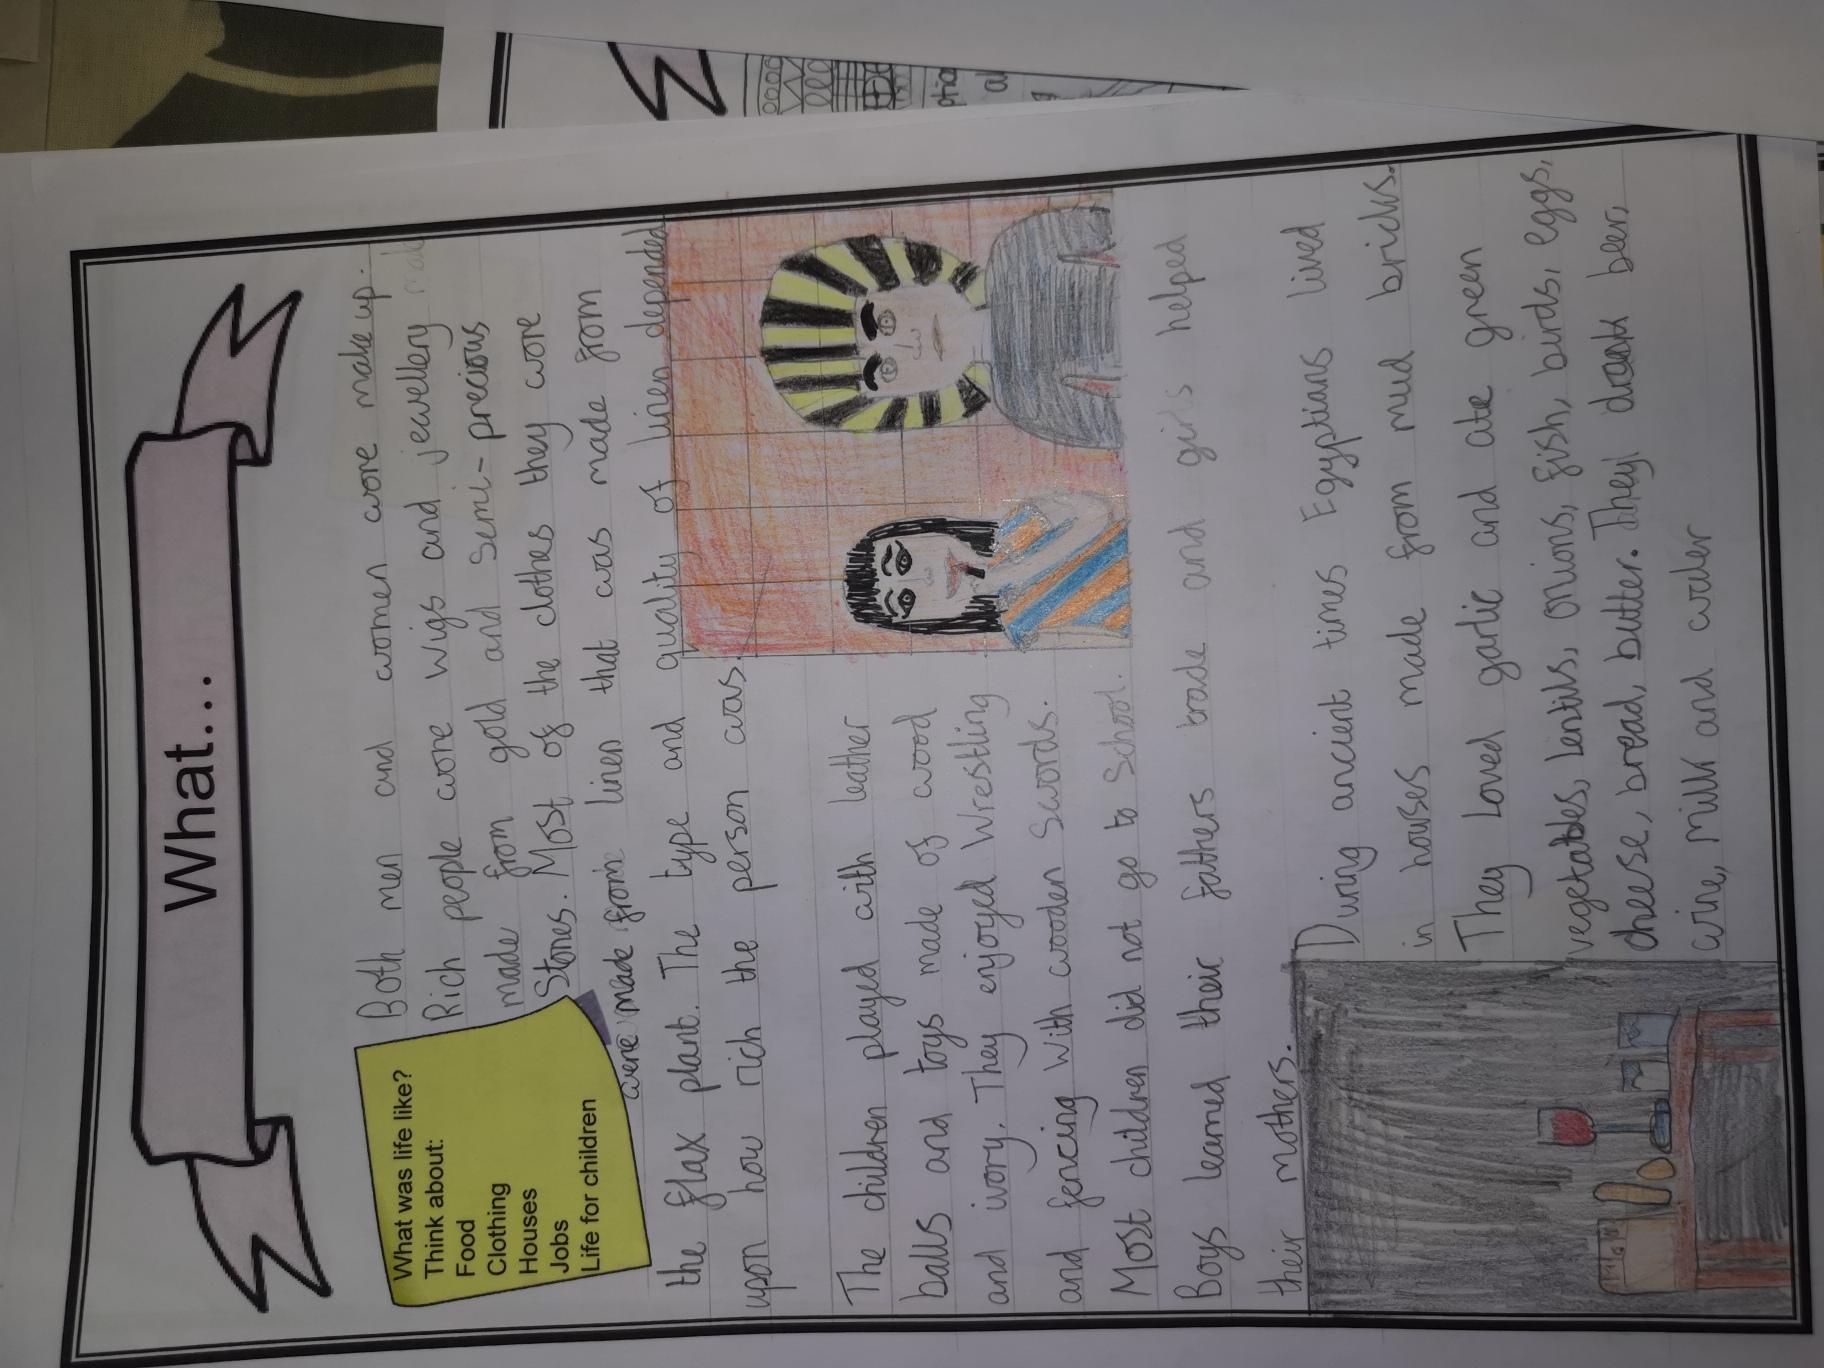 What...
What was life like?
Think about:
Food
Clothing
Houses
Jobs
Life for children
Both men and women wore make up.
Rich people wore wigs and jewellery
made from gold and semi-precious
Stones. Most of the clothes they wore
were made from linen that was made from
the flax plant. The type and quality of linen depended
upon how rich the person was.
The children played with leather
balls and toys made of wood
and ivory. They enjoyed Wrestling
and fencing With wooden Swords.
Most children did not go to School.
Boys learned their fathers trade and girls helped
their mothers.
During ancient times Egyptians lived
in houses made from mud bricks.
They Loved garlic and ate green
vegetables, lentils, onions, fish, birds, eggs,
cheese, bread, butter. They drank beer,
wine, milk and water